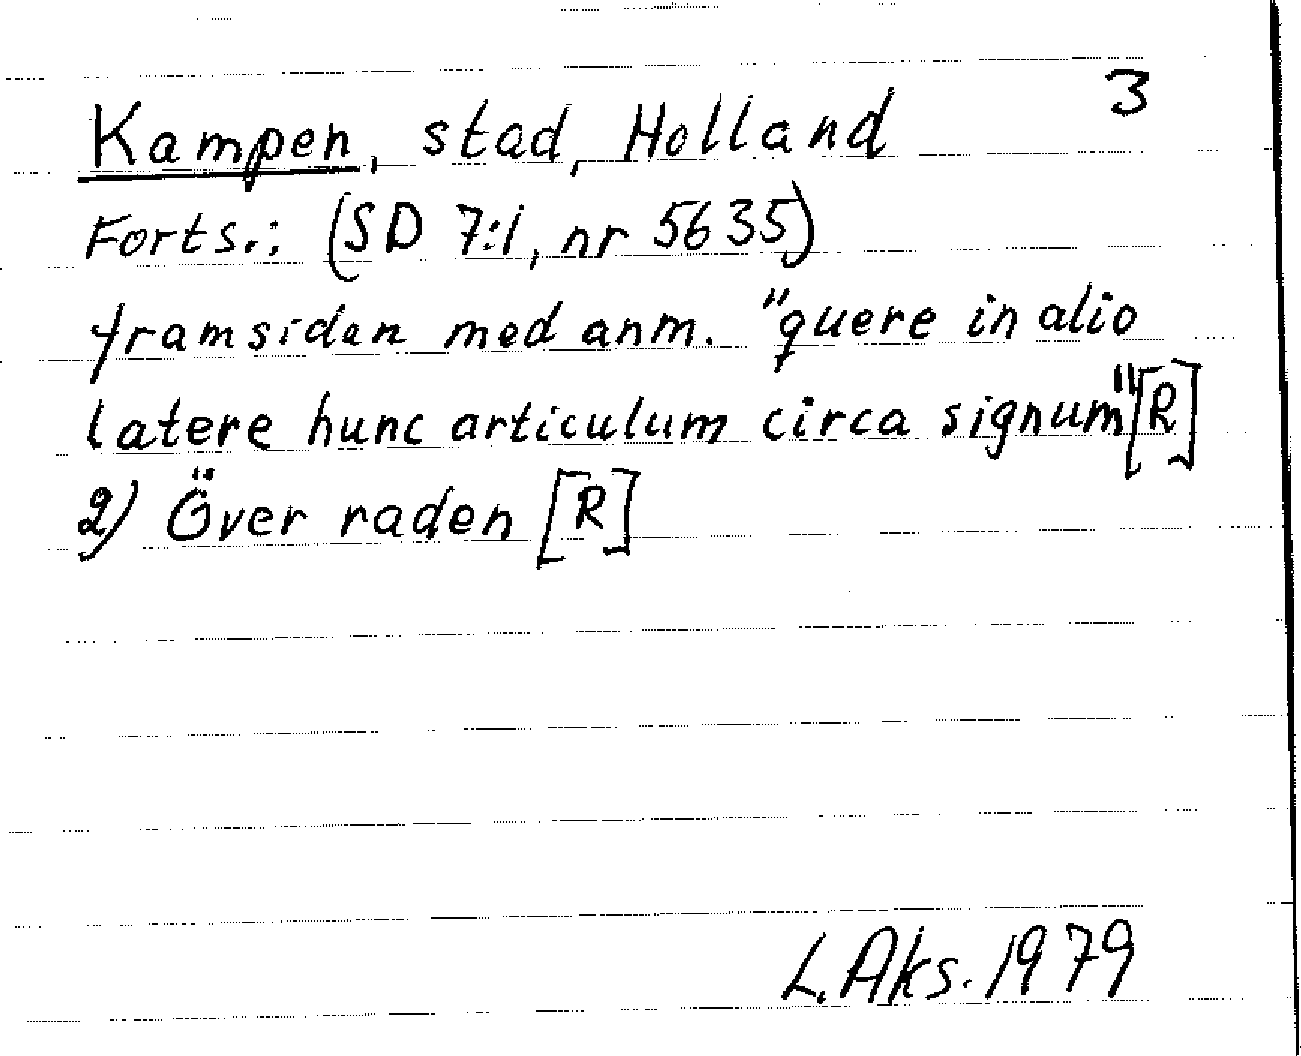 3
Kampen, stad, Holland
Forts.: (SD 7:1, nr 5635)
framsidan med anm. "quere in alio
latere hunc articulum circa signum" [R]
2) Över raden [R]
L. Aks. 1979